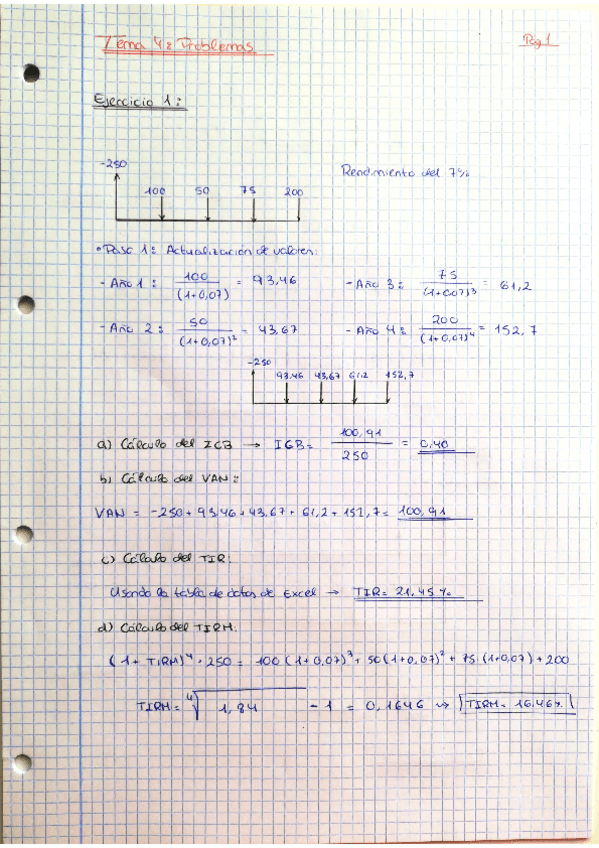 Tema 4: Problemas
Pág 1
Ejercicio 1:
-250
100 50 75 200
Rendimiento del 7%
• Paso 1: Actualización de valores:
- Año 1: 100/(1+0,07) = 93,46
- Año 3: 75/(1+0,07)³ = 61,2
- Año 2: 50/(1+0,07)² = 43,67
- Año 4: 200/(1+0,07)⁴ = 152,7
-250
93,46 43,67 61,2 152,7
a) Cálculo del ICB → ICB = 100,91/250 = 0,40
b) Cálculo del VAN:
VAN = -250 + 93,46 + 43,67 + 61,2 + 152,7 = 100,91
c) Cálculo del TIR:
Usando la tabla de datos de Excel → TIR = 21,45%
d) Cálculo del TIRM:
(1 + TIRM)⁴ · 250 = 100(1+0,07)³ + 50(1+0,07)² + 75·(1+0,07) + 200
TIRM = ⁴√1,84 - 1 = 0,1646 → TIRM = 16,46%